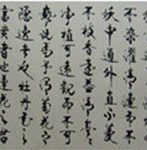 不染濯清漣而不
妖中通外直不蔓
不枝香遠益清亭亭
淨植可遠觀而不可
褻玩焉予謂菊花之
隱逸者也牡丹花之
富貴者也蓮花之君